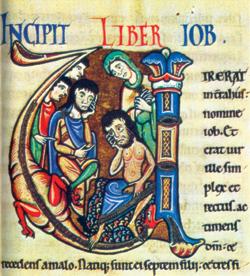 INCIPIT LIBER IOB
VIR ERAT
in tra hus
nomine
iob. Et
erat uir
ille sim
plex et
rectus. ac
timens
dm̄. &
recedens a malo. Natiq; sunt ei septem filii. & tres fi